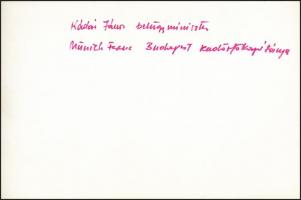 Kádár János belügyminiszter
Münich Ferenc Budapest rendőrfőkapitánya